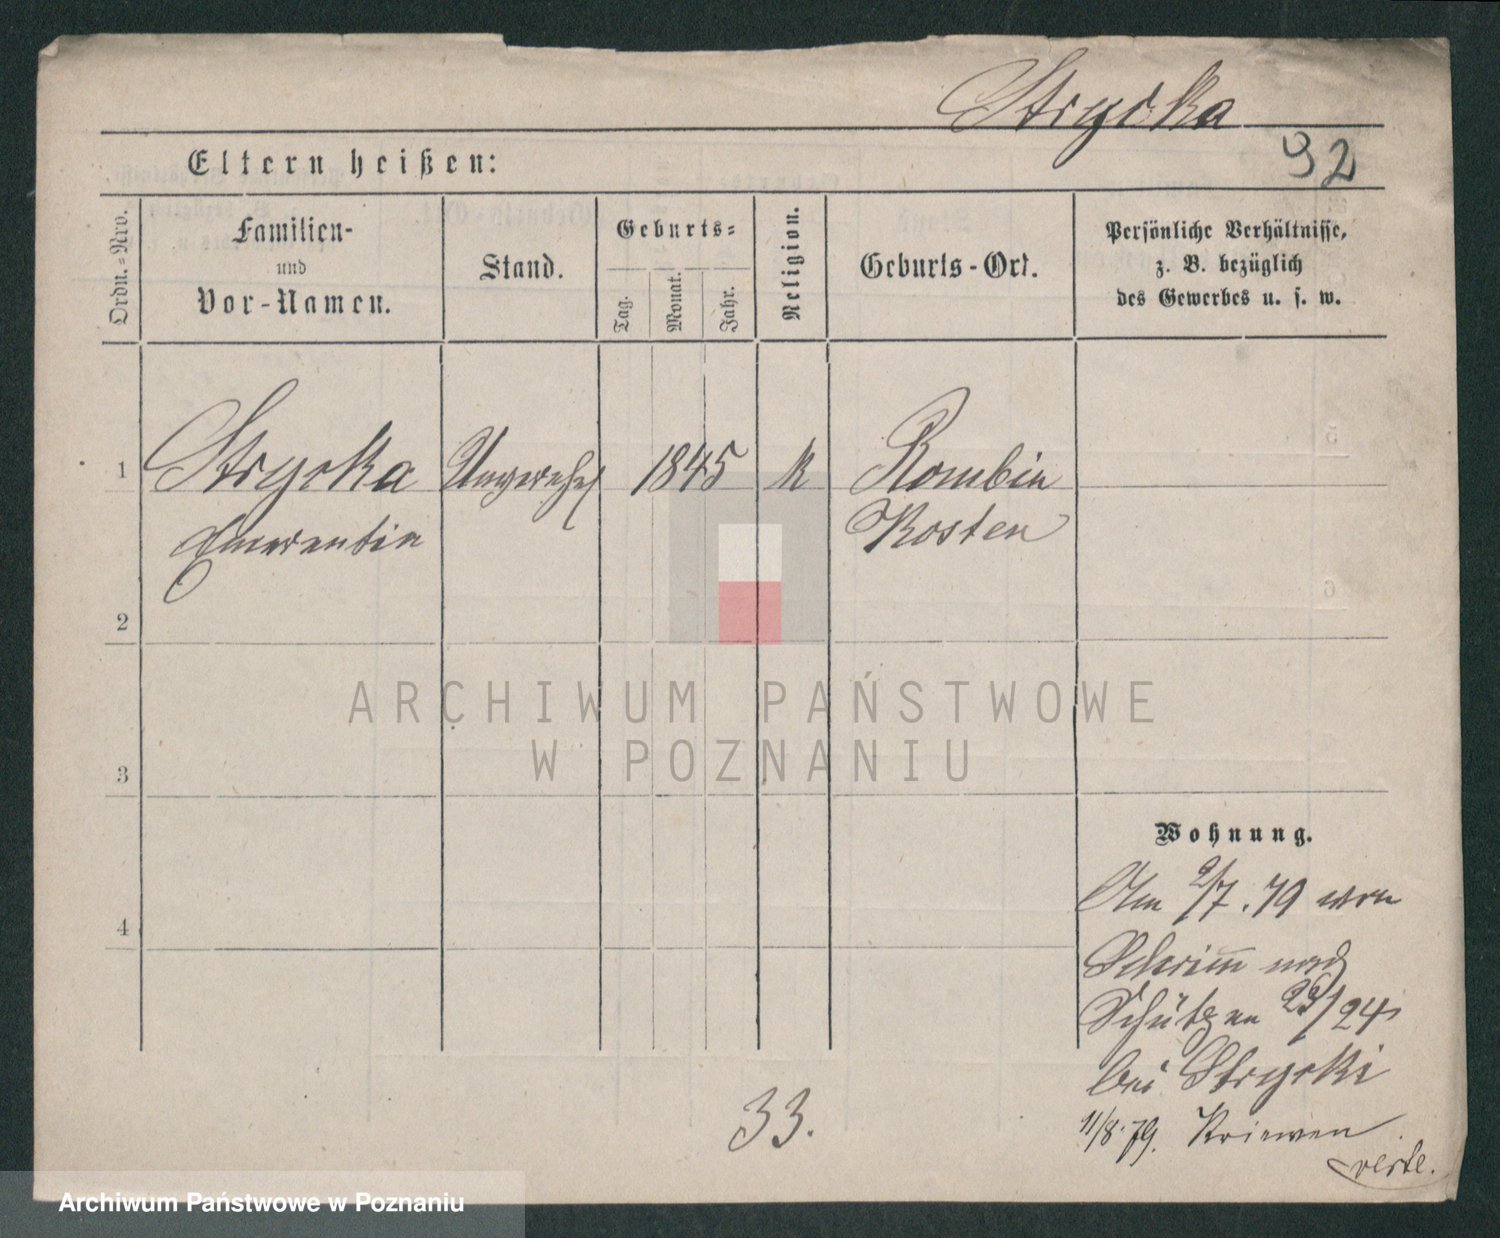 Strycka
92
Eltern heißen:
Ordn.-Nro.
Familien-
und
Vor-Namen.
Stand.
Geburts-
Tag.
Monat.
Jahr.
Religion.
Geburts-Ort.
Persönliche Verhältnisse,
z. B. bezüglich
des Gewerbes u. s. w.
1
Strycka
Unverehel
1845
k
Rombin
Emerentia
Kosten
2
ARCHIWUM PAŃSTWOWE
W POZNANIU
3
Wohnung.
4
Am 2/7. 79 von
Schrim̄ nach
Schützen 23/24
bei Strycki
11/8. 79. Kriewen
verte.
33.
Archiwum Państwowe w Poznaniu